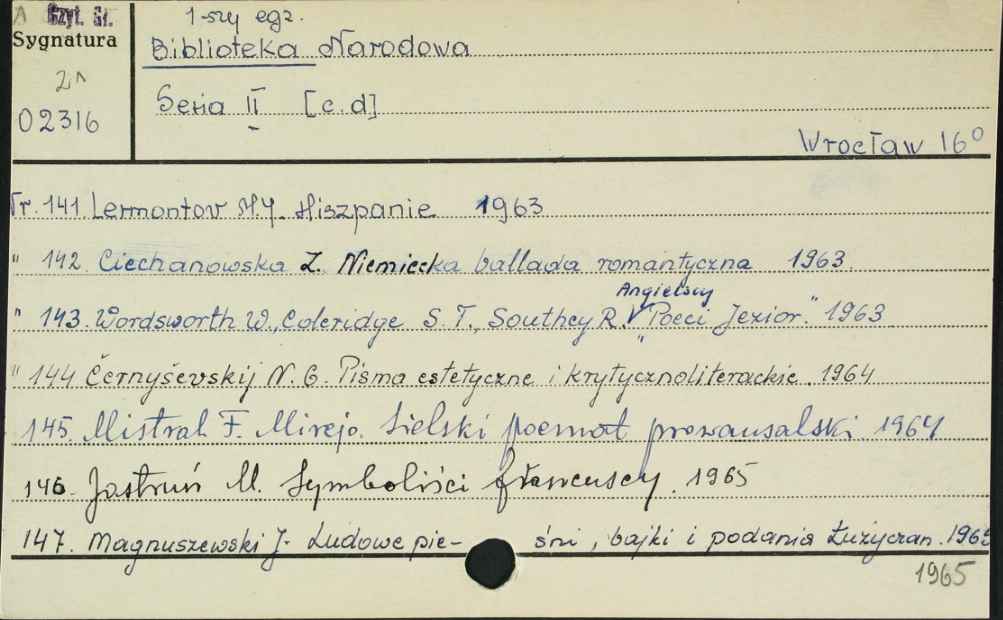 Czyt. Gł.
1-szy egz.
Sygnatura
Biblioteka Narodowa
02316
Seria II [c.d]
Wrocław 16°
Nr. 141. Lermontov M.J. Hiszpanie 1963
" 142. Ciechanowska Z. Niemiecka ballada romantyczna 1963.
Angielscy
" 143. Wordsworth W., Coleridge S.T., Southey R. V "Poeci Jezior." 1963
" 144 Černyševskij N.G. Pisma estetyczne i krytycznoliterackie. 1964
145. Mistral F. Mirejo. Sielski poemat prowansalski. 1964
146. Jastruń M. Symboliści francuscy. 1965
147. Magnuszewski J. Ludowe pie- śni, bajki i podania Łużyczan. 1965
1965